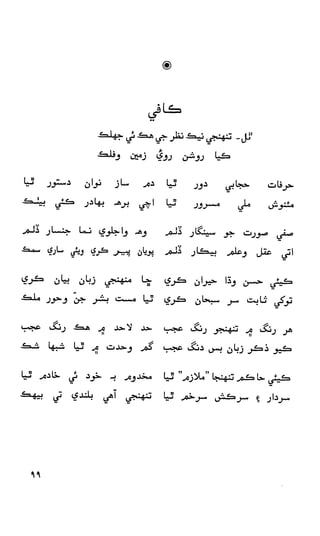 ڪافي
ٿل۔ تنهنجي نيڪ نظر جي هڪ ئي جهلڪ
ڪيا روشن روئي زمين وفلڪ
حرفات حجابي دور ٿيا دم ساز نوان دستور ٿيا
مئنوش ملي مسرور ٿيا اچي برهہ بهادر ڪئي بيٺڪ
صفي صورت جو سينگار ڏٺم وهہ واجلوي نما جنسار ڏٺم
اتي عقل وعلم بيڪار ڏٺم پويان پير ڪري ويئي ساري سمڪ
ڪيئي حسن وڏا حيران ڪري ڇا منهنجي زبان بيان ڪري
توکي ثابت سر سبحان ڪري ٿيا مست بشر جنّ وحور ملڪ
هر رنگ ۾ تنهنجو رنگ عجب حد لاحد ۾ هڪ رنگ عجب
ڪيو ذڪر زبان بس دنگ عجب گم وحدت ۾ ٿيا شبها شڪ
ڪيئي حاڪم تنهنجا "ملازم" ٿيا مخدوم بہ خود ئي خادم ٿيا
سردار ۽ سرڪش سرخم ٿيا تنهنجي آهي بلندي تي بيهڪ
٩٩